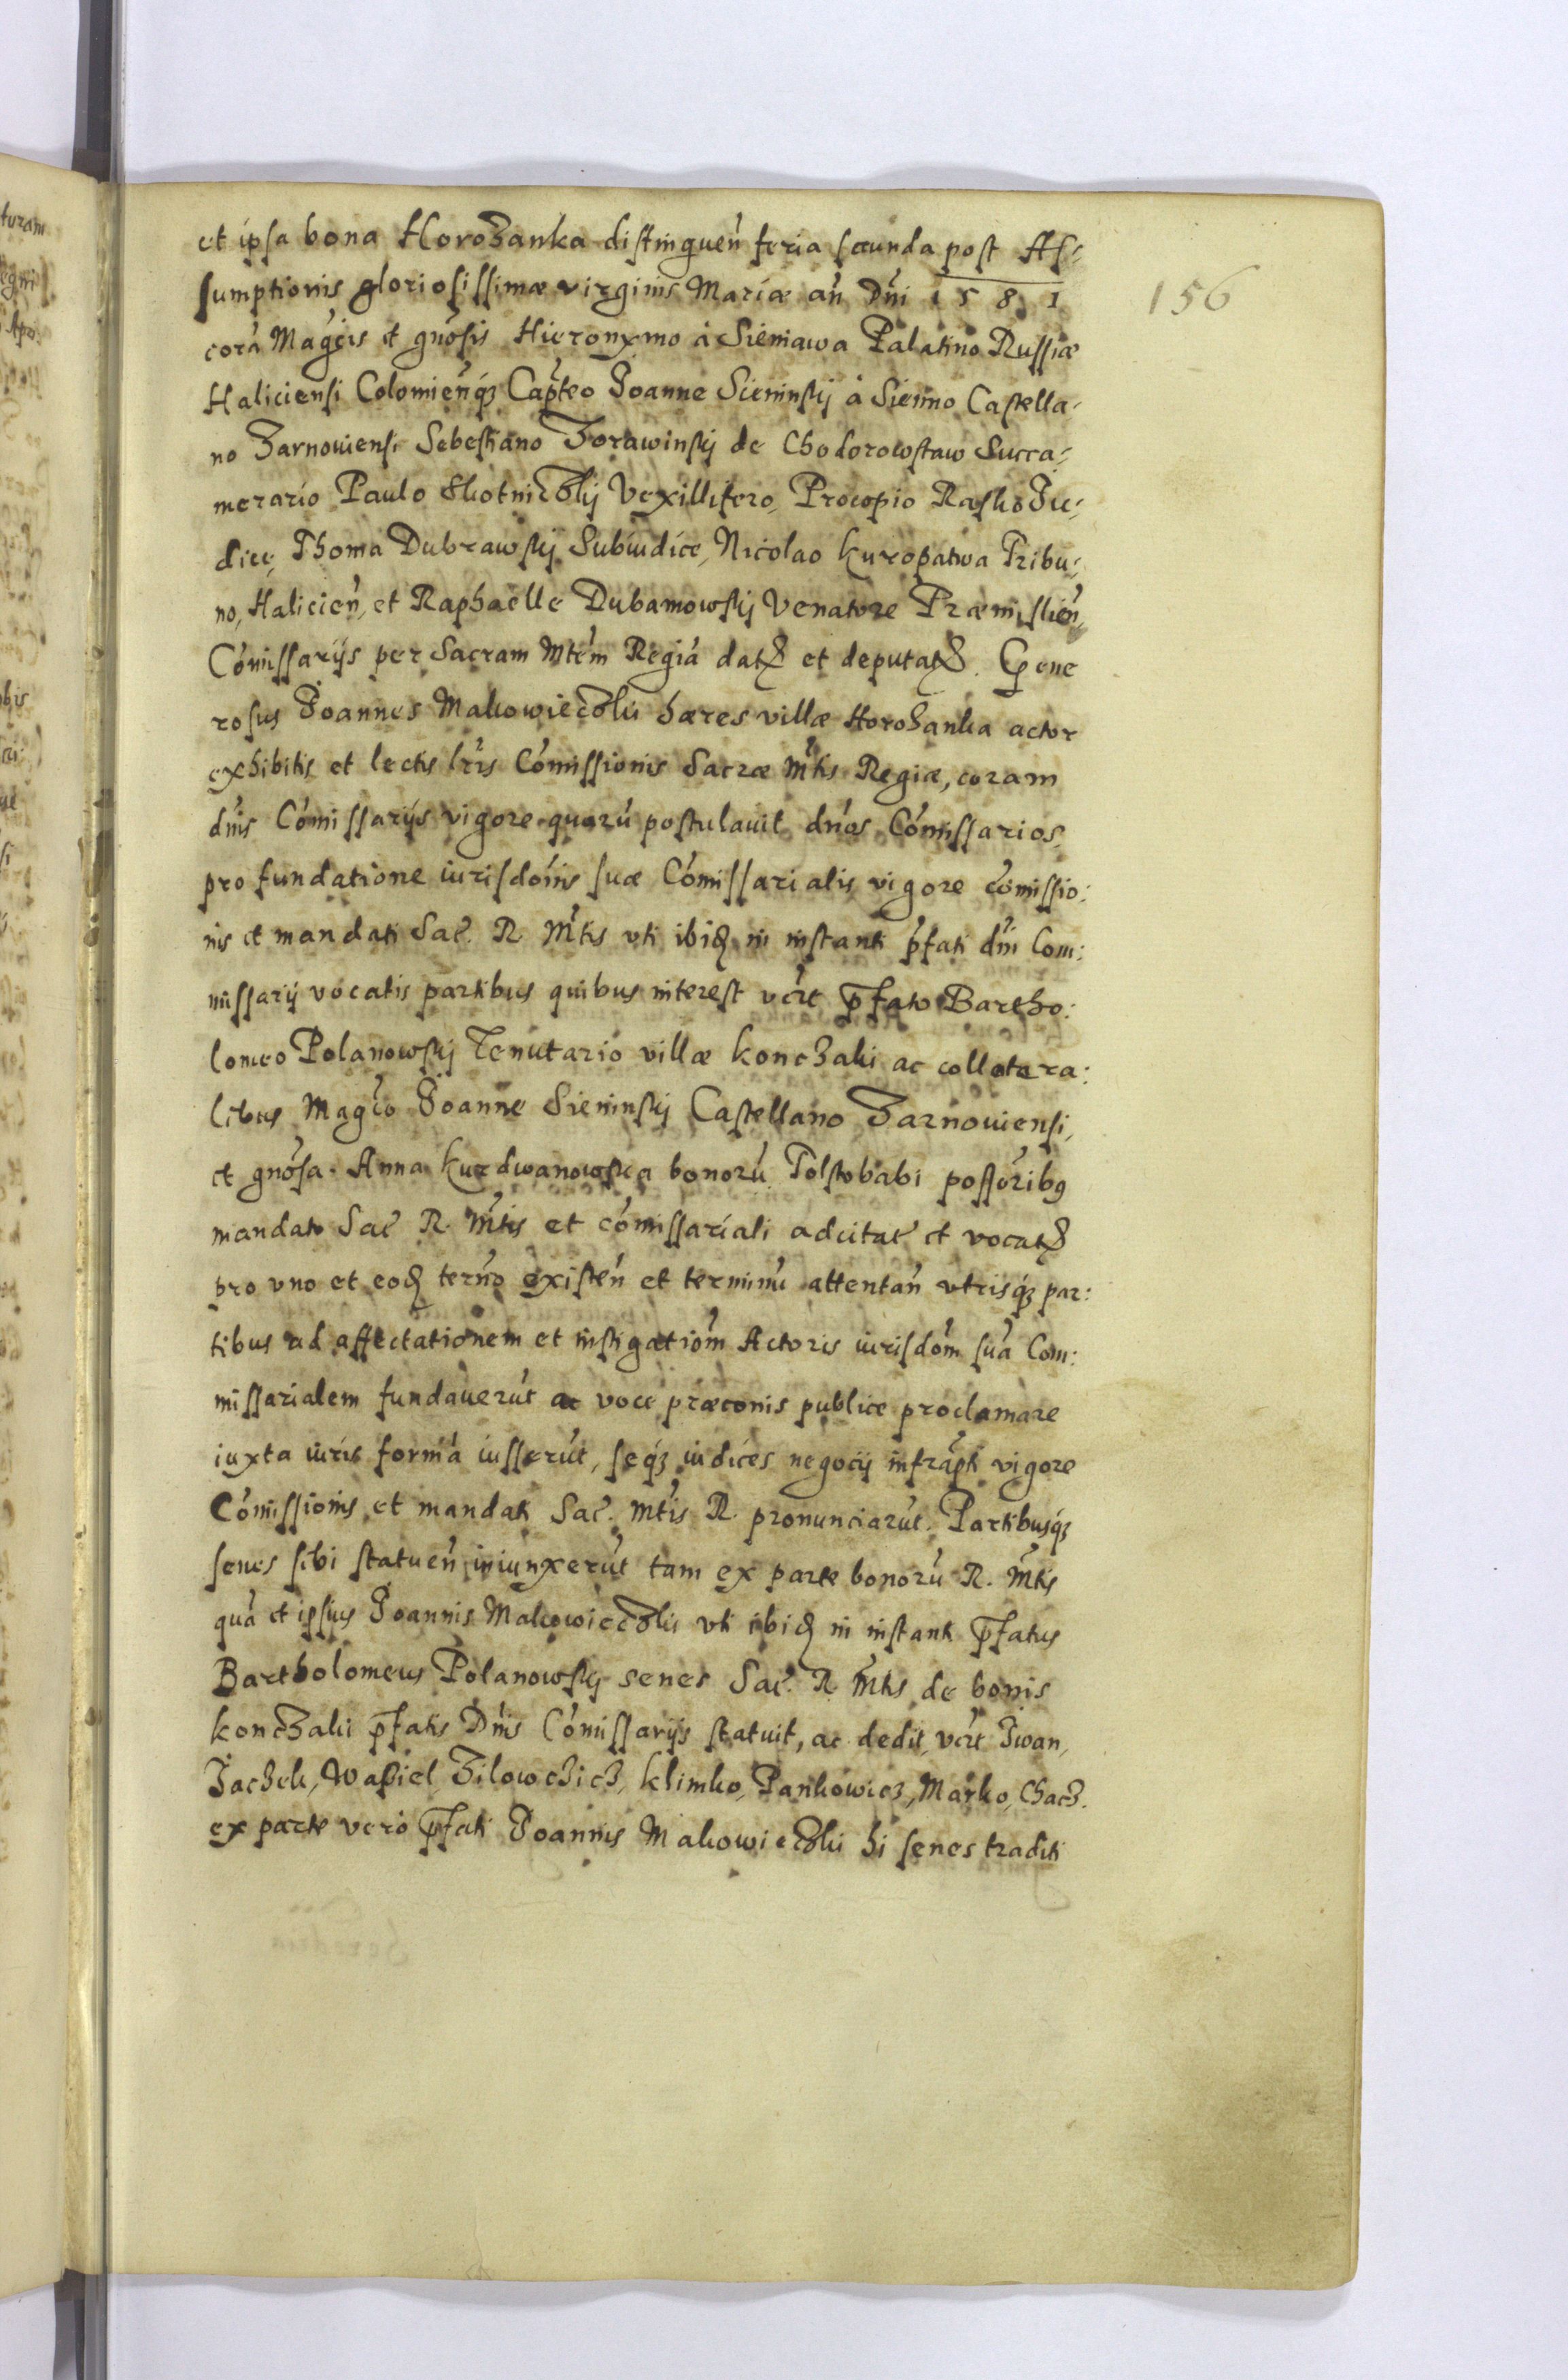 et ipsa bona Horozanka distinguen̄ feria secunda post As-
sumptionis gloriosissimæ virginis Mariæ an̄ Dn̄i 1581
156
corā Magcīs et gnōsis Hieronymo à Sieniawa Palatino Russiæ
Haliciensi Colomien̄q₃ Cap̄teo Joanne Sieninskij à Sienno Castella-
no Zarnouiensi Sebestiano Zorawinskij de Chodorowstaw Succa-
merario Paulo Skotniczkij Vexillifero, Procopio Rasko Ju-
dice, Thoma Dubrawskij Subiudice, Nicolao Kuropatwa Tribu-
no, Halicien̄, et Raphaelle Dubamowskij Venatore Præmislien̄,
Com̄issarijs per Sacram Mtem̄ Regiā datꝭ et deputatꝭ. Gene
rosus Joannes Makowieczki hæres villæ Horozanka actor
exhibitis et lectis lrīs Com̄issionis Sacræ Mtīs Regiæ, coram
dn̄is Com̄issarijs vigore quarū postulauit dn̄os Com̄issarios
pro fundatione iurisdōnis suæ Com̄issarialis vigore com̄issio:
nis et mandati Sac̄. R. Mtīs vti ibiđ in instanti p̄fati dn̄i Com:
missarij vocatis partibus quibus interest vc̄rt p̄fato Bartho:
lomeo Polanowskij Tenutario villæ Konczaki ac collatera:
libus Magco̅ Joanne Sieninskij Castellano Zarnouiensi,
et gnōsa Anna Kurdwanowska bonorū Tolstobabi possōribꝰ
mandato Sac̄ R. Mtīs et com̄issariali adcitat̄ et vocatꝭ
pro vno et eođ tern̄o existen̄ et terminū attentan̄ vtrisq₃ par:
tibus ad affectationem et instigatiōm Actoris iurisdōm suā Com:
missarialem fundauerūt ac voce præconis publice proclamare
iuxta iuris formā iusserūt, seq₃ iudices negocij infrap̄ti vigore
Com̄issionis et mandati Sac̄. Mtīs R. pronunciarūt. Partibusq₃
senes sibi statuen̄ iniunxerūt tam ex parte bonorū R. Mtīs
quā et ipsius Joannis Makowieczki vti ibiđ in instanti p̄fatus
Bartholomeus Polanowskij senes Sac̄. R. Mtīs de bonis
Konczaki p̄fatis Dn̄is Com̄issarijs statuit, ac dedit, vc̄rt Iwan,
Jaczek, Wasiel, Zilowczicz, Klimko, Pankowicz, Marko, Chacz.
ex parte vero p̄fati Joannis Makowieczki hi senes traditi